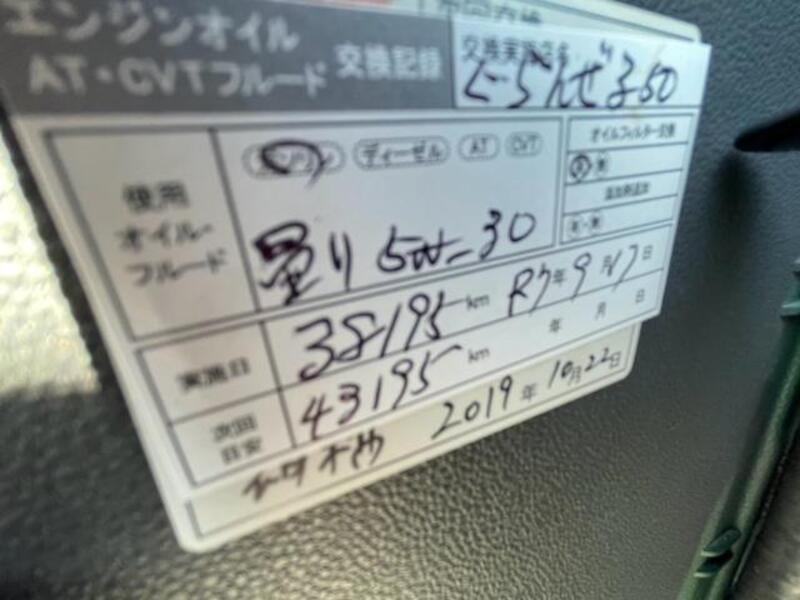 エンジンオイル
AT・CVTフルード 交換記録
交換実施店名
ガソリン ディーゼル AT CVT
オイルフィルター交換
有・無
添加剤添加
有・無
使用
オイル・
フルード
量り 5W-30
実施日 38195 km R7年 9月17日
次回
目安 43195 km 年 月 日
2019年 10月22日